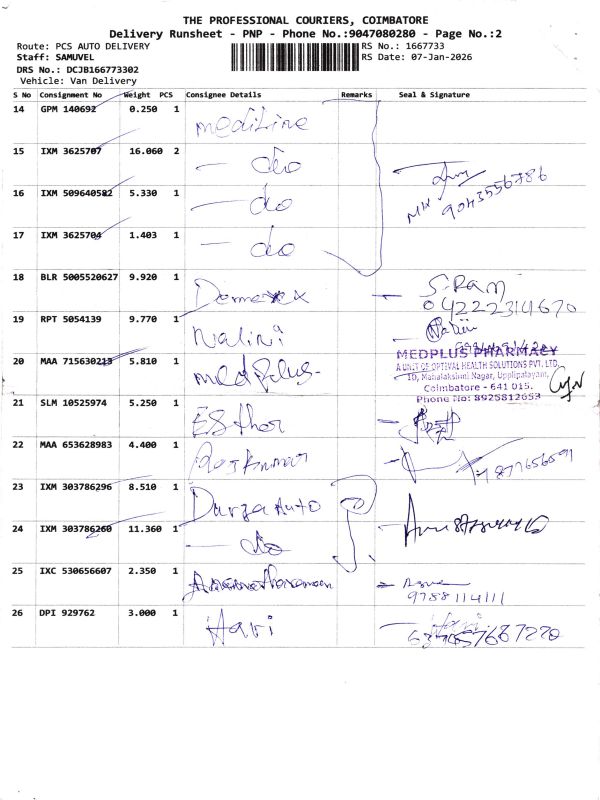 THE PROFESSIONAL COURIERS, COIMBATORE
Delivery Runsheet - PNP - Phone No.:9047080280 - Page No.:2
Route: PCS AUTO DELIVERY
RS No.: 1667733
Staff: SAMUVEL
RS Date: 07-Jan-2026
DRS No.: DCJB166773302
Vehicle: Van Delivery
S No Consignment No Weight PCS Consignee Details Remarks Seal & Signature
14 GPM 140692 0.250 1 mediline
15 IXM 3625707 16.060 2 - do
16 IXM 509640582 5.330 1 - do
9043556786
17 IXM 3625704 1.403 1 - do
18 BLR 5005520627 9.920 1 - S. Ram
04222314670
19 RPT 5054139 9.770 1 Nalini
20 MAA 715630213 5.810 1 medplus-
MEDPLUS PHARMACY
A UNIT OF OPTIVAL HEALTH SOLUTIONS PVT. LTD.
10, Mahalakshmi Nagar, Upplipalayam,
Coimbatore - 641 015.
Phone No: 8925812653
21 SLM 10525974 5.250 1 Esther
22 MAA 653628983 4.400 1
23 IXM 303786296 8.510 1 Durga Auto
24 IXM 303786260 11.360 1 - do
25 IXC 530656607 2.350 1
9788114111
26 DPI 929762 3.000 1 Hari